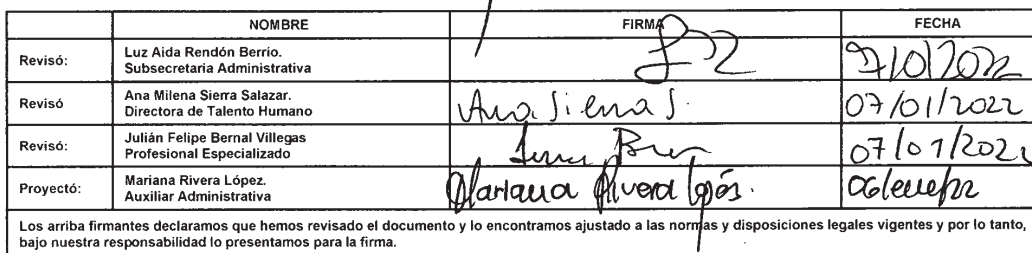 NOMBRE FIRMA FECHA
Revisó: Luz Aida Rendón Berrío.
Subsecretaria Administrativa
Revisó Ana Milena Sierra Salazar.
Directora de Talento Humano
Ana Sierra S. 07/01/2022
Revisó: Julián Felipe Bernal Villegas
Profesional Especializado
07/01/2022
Proyectó: Mariana Rivera López.
Auxiliar Administrativa
Mariana Rivera López. 06/ene/22
Los arriba firmantes declaramos que hemos revisado el documento y lo encontramos ajustado a las normas y disposiciones legales vigentes y por lo tanto,
bajo nuestra responsabilidad lo presentamos para la firma.